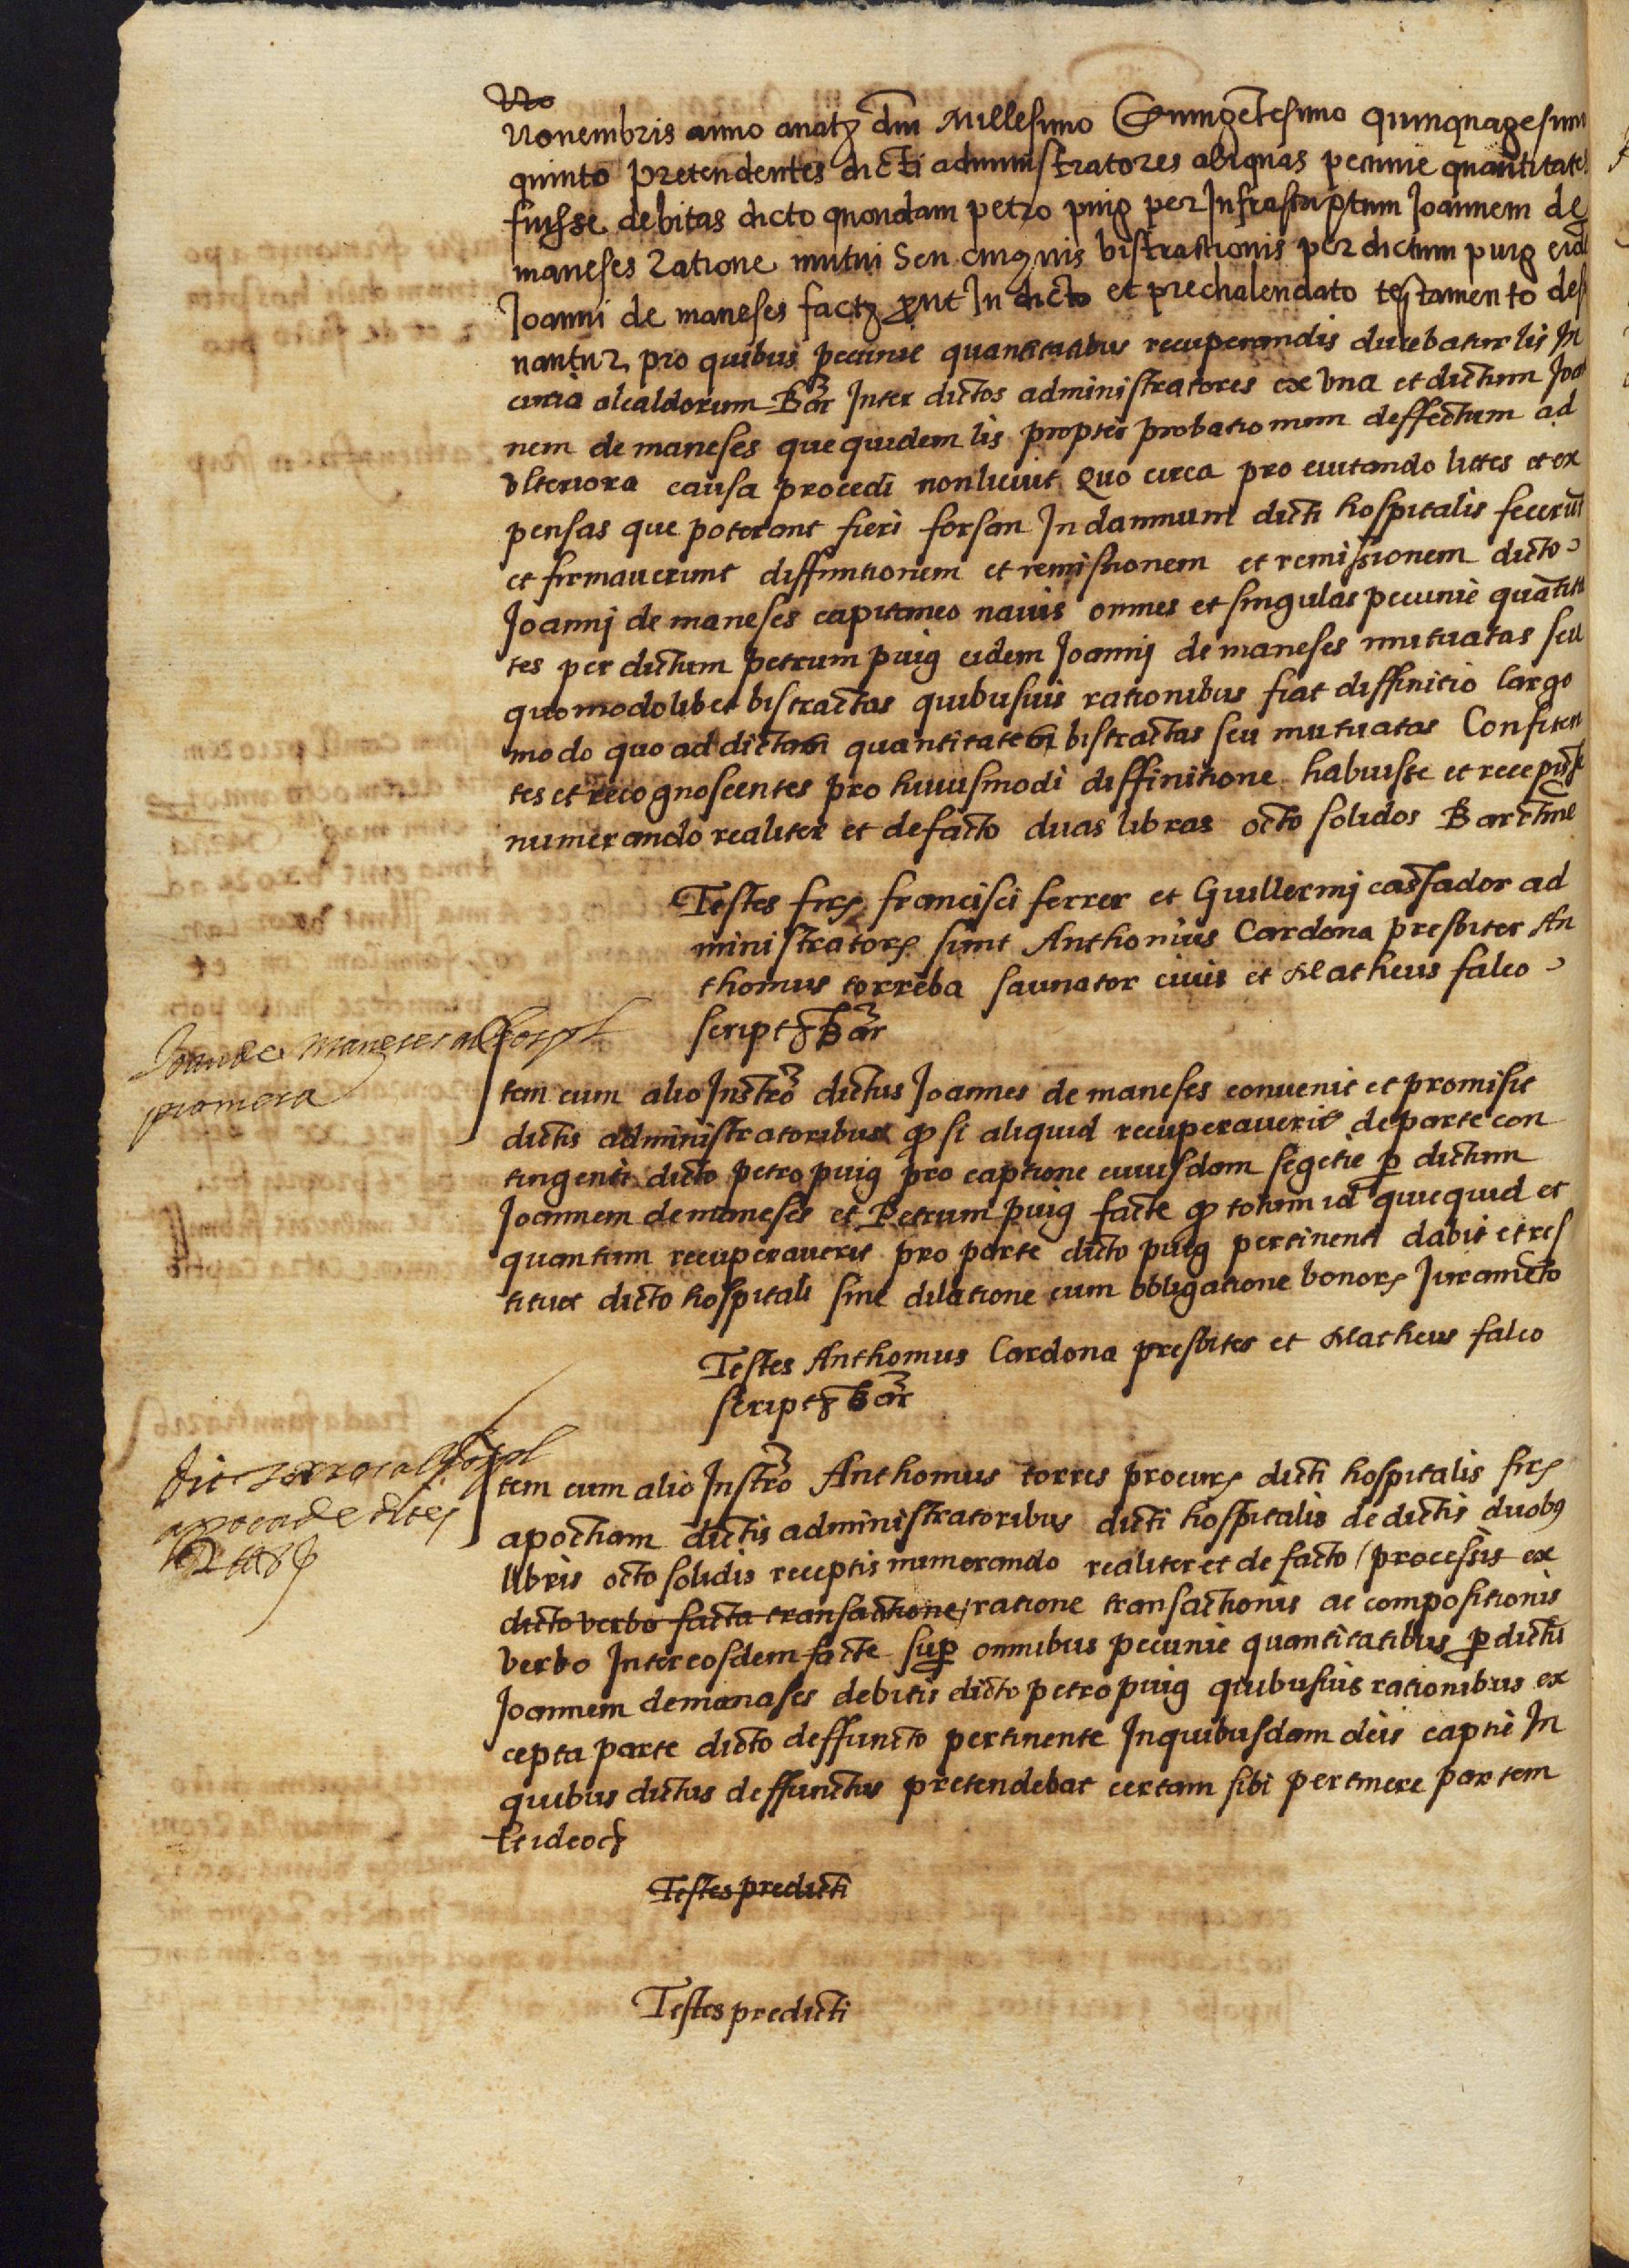 No
Nouembris anno anatz dni Millesimo Quingetesimo quinquagesimo
quinto pretendentes dicti administratores aliquas pecunie quantitates
fuisse debitas dicto quondam petro puig per Infrascriptum Joannem de
maneses ratione mutui seu cuiusuis bistractionis per dictum puig eid
Joanni de maneses factz prout In dicto et prechalendato testamento desi
nantur, pro quibus pecunie quantitatibus recuperandis ducebatur lis In
curia alcaldorum Bar Inter dictos administratores ex Vna et dictum Joa
nem de maneses que quidem lis propter probationum deffectum ad
Vlteriora causa procedi non licuit Quo circa pro euitando littes et ex
pensas que poterant fieri forsan In damnum dicti hospitalis fecerut
et firmauerunt diffinitionem et remissionem et remissionem dicto
Joannj de maneses capitaneo nauis omnes et singulas pecunie quātita
tes per dictum petrum puig eidem Joannj de maneses mutuatas seu
quomodolibet bistractas quibusuis rationibus fiat diffinitio largo
modo quo ad dictam quantitatem bistractas seu mutuatas Confiten
tes et recognoscentes pro huiusmodi diffinitione habuisse et recepisse
numerando realiter et defacto duas libras octo solidos Barchne
Testes firs francisci ferrer et Guillermj cassador ad
ministrators sunt Anthonius Cardona presbiter An
thonius torreba saunator ciuis et Matheus falco
script Bar
Joan de maneses al hospl
promesa
Item cum alio Instro dictus Joannes de maneses conuenit et promisit
dictis administratoribus q si aliquid recuperauerit de parte con
tingenti dicto petro puig pro captione cuiusdam segetie p dictum
Joannem de maneses et Petrum puig facte q totum id quicquid et
quantum recuperauerit pro parte dicto puig pertinenti dabit et res
tituet dicto hospitali sine dilatione cum obligatione bonors Juramēto
Testes Anthonius Cardona presbiter et Matheus falco
script Bar
dit al hospl
apoca de dites
Item cum alio Instro Anthonius torres procurs dicti hospitalis firs
apocham dictis administratoribus dicti hospitalis de dictis duobs
libris octo solidis receptis numerando realiter et de facto /processis ex
dicto verbo facta transactione/ ratione transactionis ac compositionis
verbo Inter eosdem facte sup omnibus pecunie quantitatibus p dictū
Joannem de manases debitis dicto petro puig quibusuis rationibus ex
cepta parte dicto deffuncto pertinente In quibusdam deis captie In
quibus dictus deffunctus pretendebat certam sibi pertinere partem
Et ideo etz
Testes predicti
Testes predicti